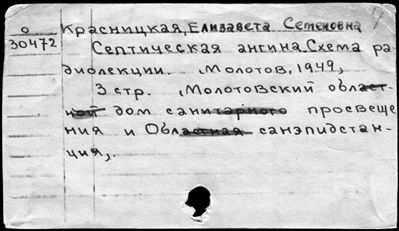 о
30472
Красницкая, Елизавета Семеновна
Септическая ангина. Схема ра-
диолекции. Молотов, 1949,
3 стр. (Молотовский област-
ной дом санитарного просвеще
ния и Областная санэпидстан-
ция).